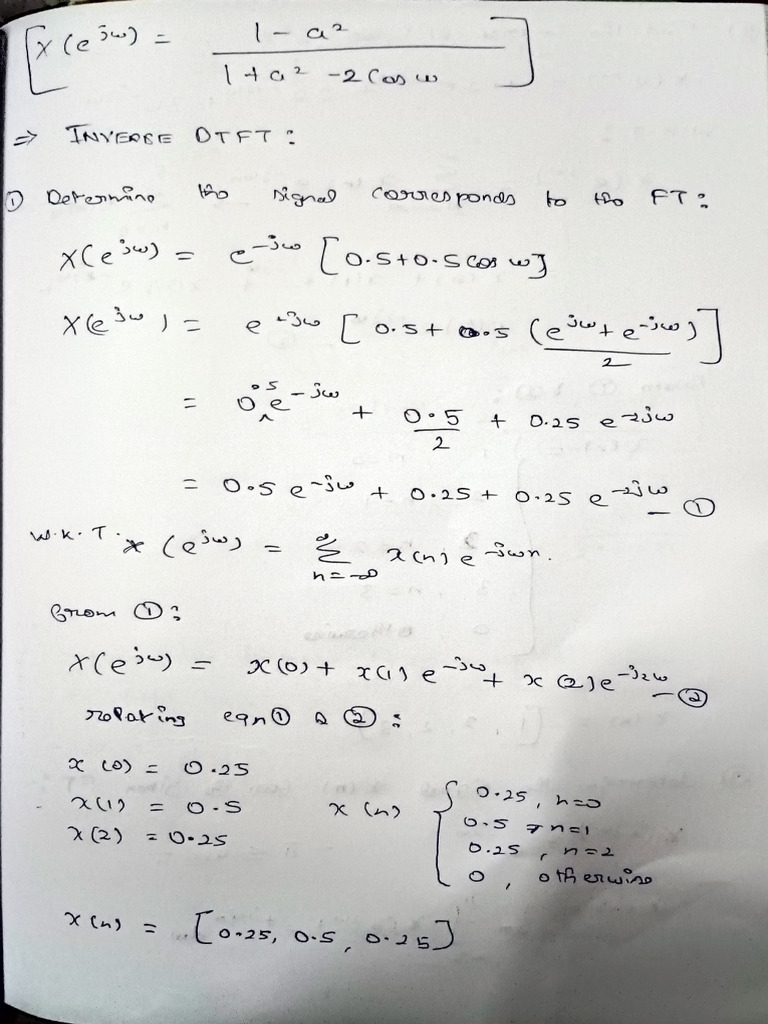 [X(e^jω) = (1 - a²) / (1 + a² - 2 Cos ω)]
⇒ INVERSE DTFT :
① Determine the signal corresponds to the FT :
X(e^jω) = e^-jω [0.5 + 0.5 cos ω]
X(e^jω) = e^-jω [0.5 + 0.5 (e^jω + e^-jω)/2]
= 0.5 e^-jω + 0.5/2 + 0.25 e^-2jω
= 0.5 e^-jω + 0.25 + 0.25 e^-2jω — ①
W.K.T. X(e^jω) = ∑_{n=-∞}^{∞} x(n) e^-jωn.
From ① :
X(e^jω) = x(0) + x(1) e^-jω + x(2) e^-j2ω — ②
relating eqn ① & ② :
x(0) = 0.25
x(1) = 0.5
x(2) = 0.25
x(n) { 0.25, n=0
0.5, n=1
0.25, n=2
0, otherwise
x(n) = [0.25, 0.5, 0.25]